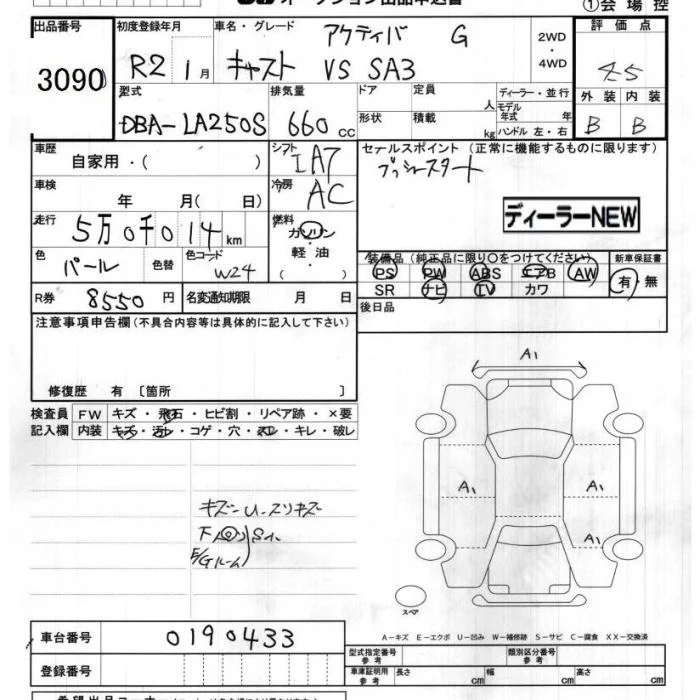 ①会場控
出品番号
3090
初度登録年月
R2 1月
車名・グレード
アクティバ G
キャスト VS SA3
2WD
・
4WD
評価点
4.5
外装 内装
B B
型式
DBA-LA250S
排気量
660 cc
ドア 定員 人
形状 積載 kg
ディーラー・並行
モデル年式 年
ハンドル 左・右
車歴
自家用・( )
シフト
IA7
車検
年 月( 日)
冷房
AC
走行
5万0千014km
燃料
ガソリン
軽油
( )
色
パール
色替
色コード
W24
R券 8550円
名変通知期限 月 日
セールスポイント(正常に機能するものに限ります)
プッシュスタート
ディーラーNEW
装備品(純正品に限り○をつけてください)
PS PW ABS エアB AW
SR ナビ TV カワ
新車保証書
有・無
後日品
注意事項申告欄(不具合内容等は具体的に記入して下さい)
修復歴 有 [箇所 ]
検査員 FW キズ・飛石・ヒビ割・リペア跡・×要
記入欄 内装 キズ・汚レ・コゲ・穴・スレ・キレ・破レ
A1
A1
A1
A1
スペア
A-キズ E-エクボ U-凹み W-補修跡 S-サビ C-腐食 XX-交換済
車台番号 0190433
登録番号
型式指定番号 参考
類別区分番号 参考
車庫証明用 参考 長さ cm 幅 cm 高さ cm